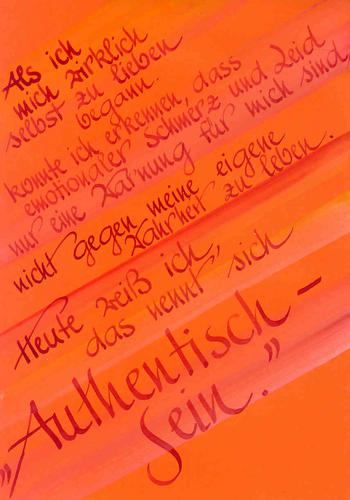 Als ich
mich wirklich
selbst zu lieben
begann.
konnte ich erkennen, dass
emotionaler Schmerz und Leid
nur eine Warnung für mich sind,
nicht gegen meine eigene
Wahrheit zu leben.
Heute weiß ich,
das nennt sich
„Authentisch-
Sein."